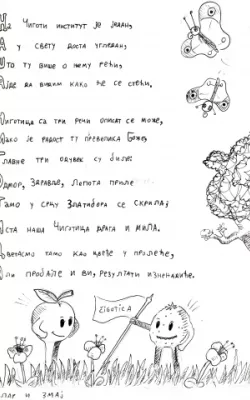 На Чиготи институт је један,
А у свету доста угледан,
Што ту више о њему рећи,
Ајде да видим како ће се срећи.
Чиготица са три речи описат се може,
Иако је радост ту превелика Боже,
Главне три одувек су биле:
Одмор, Здравље, Лепота
Тамо у срцу Златибора се скрила,
Иста наша Чиготица драга и мила.
Цветамо тамо као цвеће у пролеће,
Али пробајте и ви, резултати изненадиће.
ČIGOTICA
и Змај